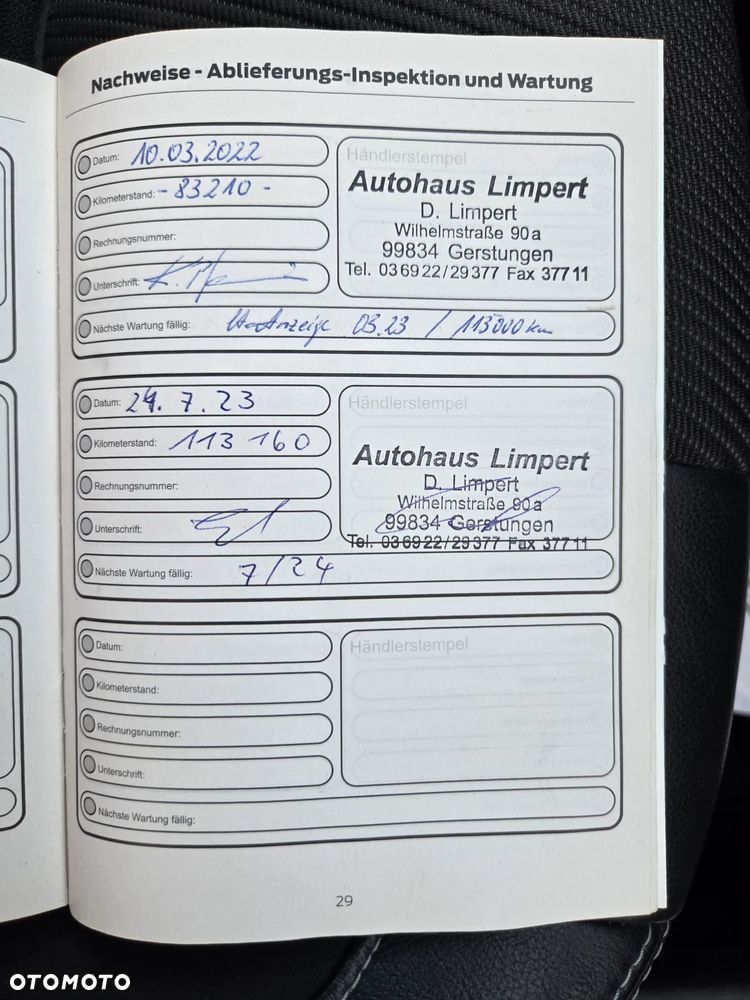 Nachweise - Ablieferungs-Inspektion und Wartung
Datum: 10.03.2022
Kilometerstand: - 83210 -
Rechnungsnummer:
Unterschrift:
Nächste Wartung fällig: lt. Anzeige 03.23 / 113000 km
Händlerstempel
Autohaus Limpert
D. Limpert
Wilhelmstraße 90a
99834 Gerstungen
Tel. 036922/29377 Fax 37711
Datum: 24. 7. 23
Kilometerstand: 113 160
Rechnungsnummer:
Unterschrift:
Nächste Wartung fällig: 7/24
Händlerstempel
Autohaus Limpert
D. Limpert
Wilhelmstraße 90a
99834 Gerstungen
Tel. 036922/29377 Fax 37711
Datum:
Kilometerstand:
Rechnungsnummer:
Unterschrift:
Nächste Wartung fällig:
Händlerstempel
29
OTOMOTO